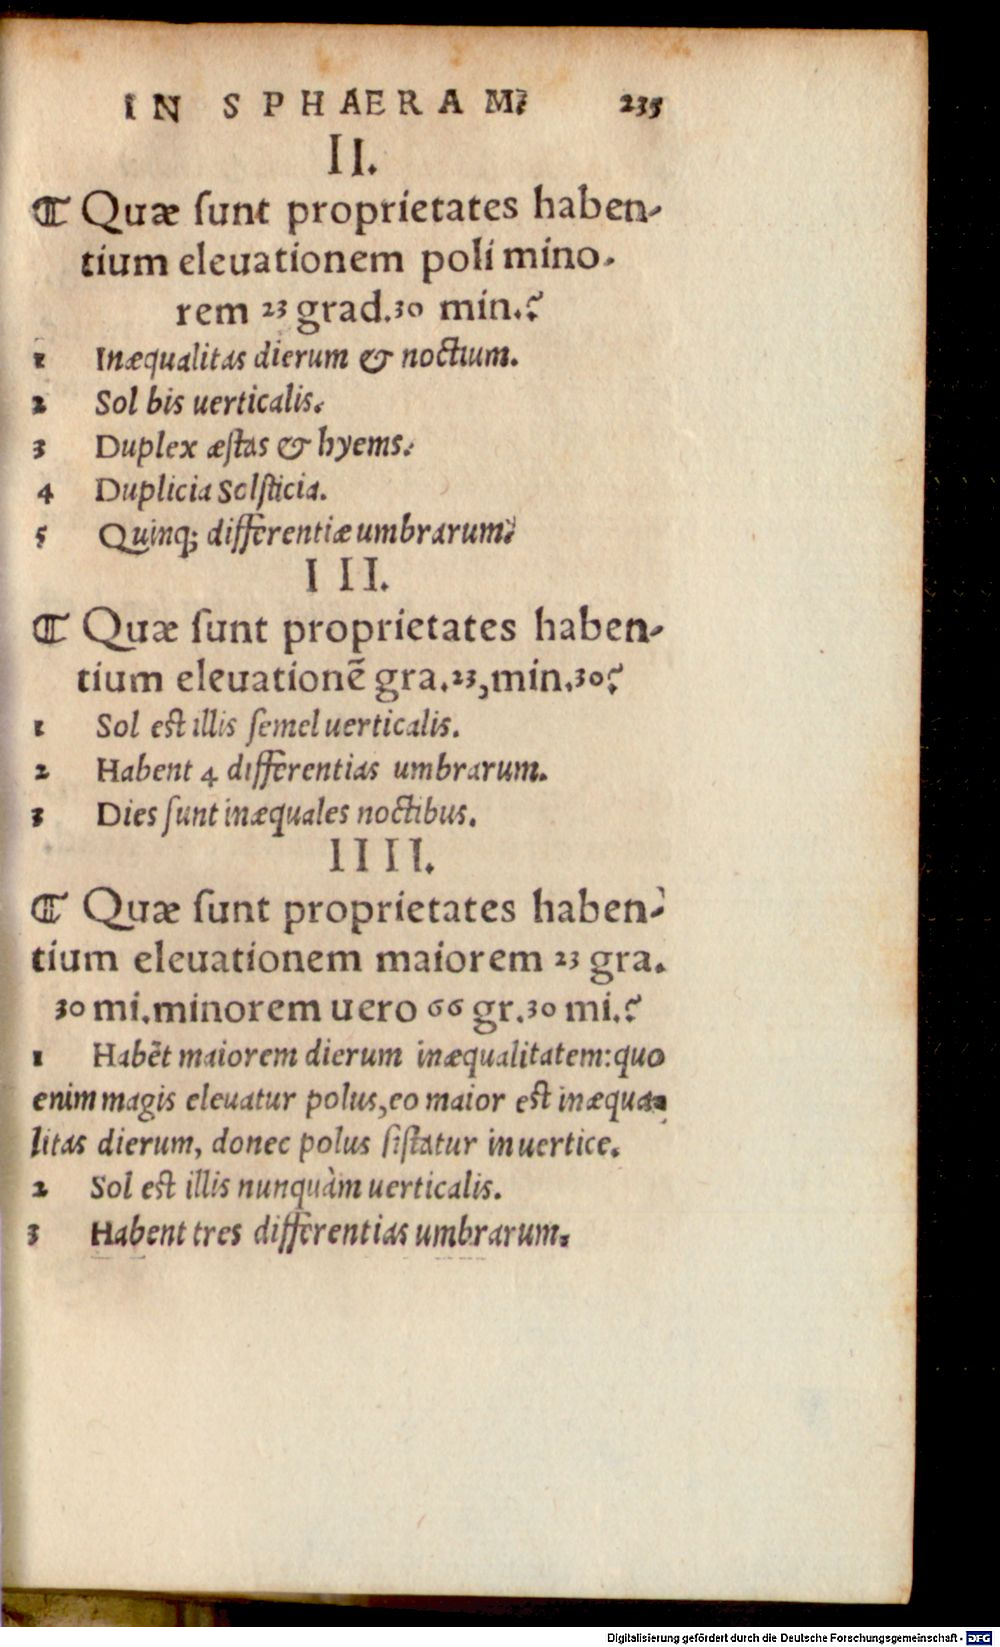 IN SPHAERAM. 235
II.
¶ Quæ ſunt proprietates haben-
tium eleuationem poli mino-
rem 23 grad. 30 min.?
1 Inæqualitas dierum & noctium.
2 Sol bis uerticalis.
3 Duplex æſtas & hyems.
4 Duplicia Solſticia.
5 Quinq; differentiæ umbrarum.
III.
¶ Quæ ſunt proprietates haben-
tium eleuationẽ gra. 23, min. 30?
1 Sol eſt illis ſemel uerticalis.
2 Habent 4 differentias umbrarum.
3 Dies ſunt inæquales noctibus.
IIII.
¶ Quæ ſunt proprietates haben-
tium eleuationem maiorem 23 gra.
30 mi. minorem uero 66 gr. 30 mi.?
1 Habẽt maiorem dierum inæqualitatem: quo
enim magis eleuatur polus, eo maior eſt inæqua-
litas dierum, donec polus ſiſtatur in uertice.
2 Sol eſt illis nunquàm uerticalis.
3 Habent tres differentias umbrarum.
Digitalisierung gefördert durch die Deutsche Forschungsgemeinschaft - DFG